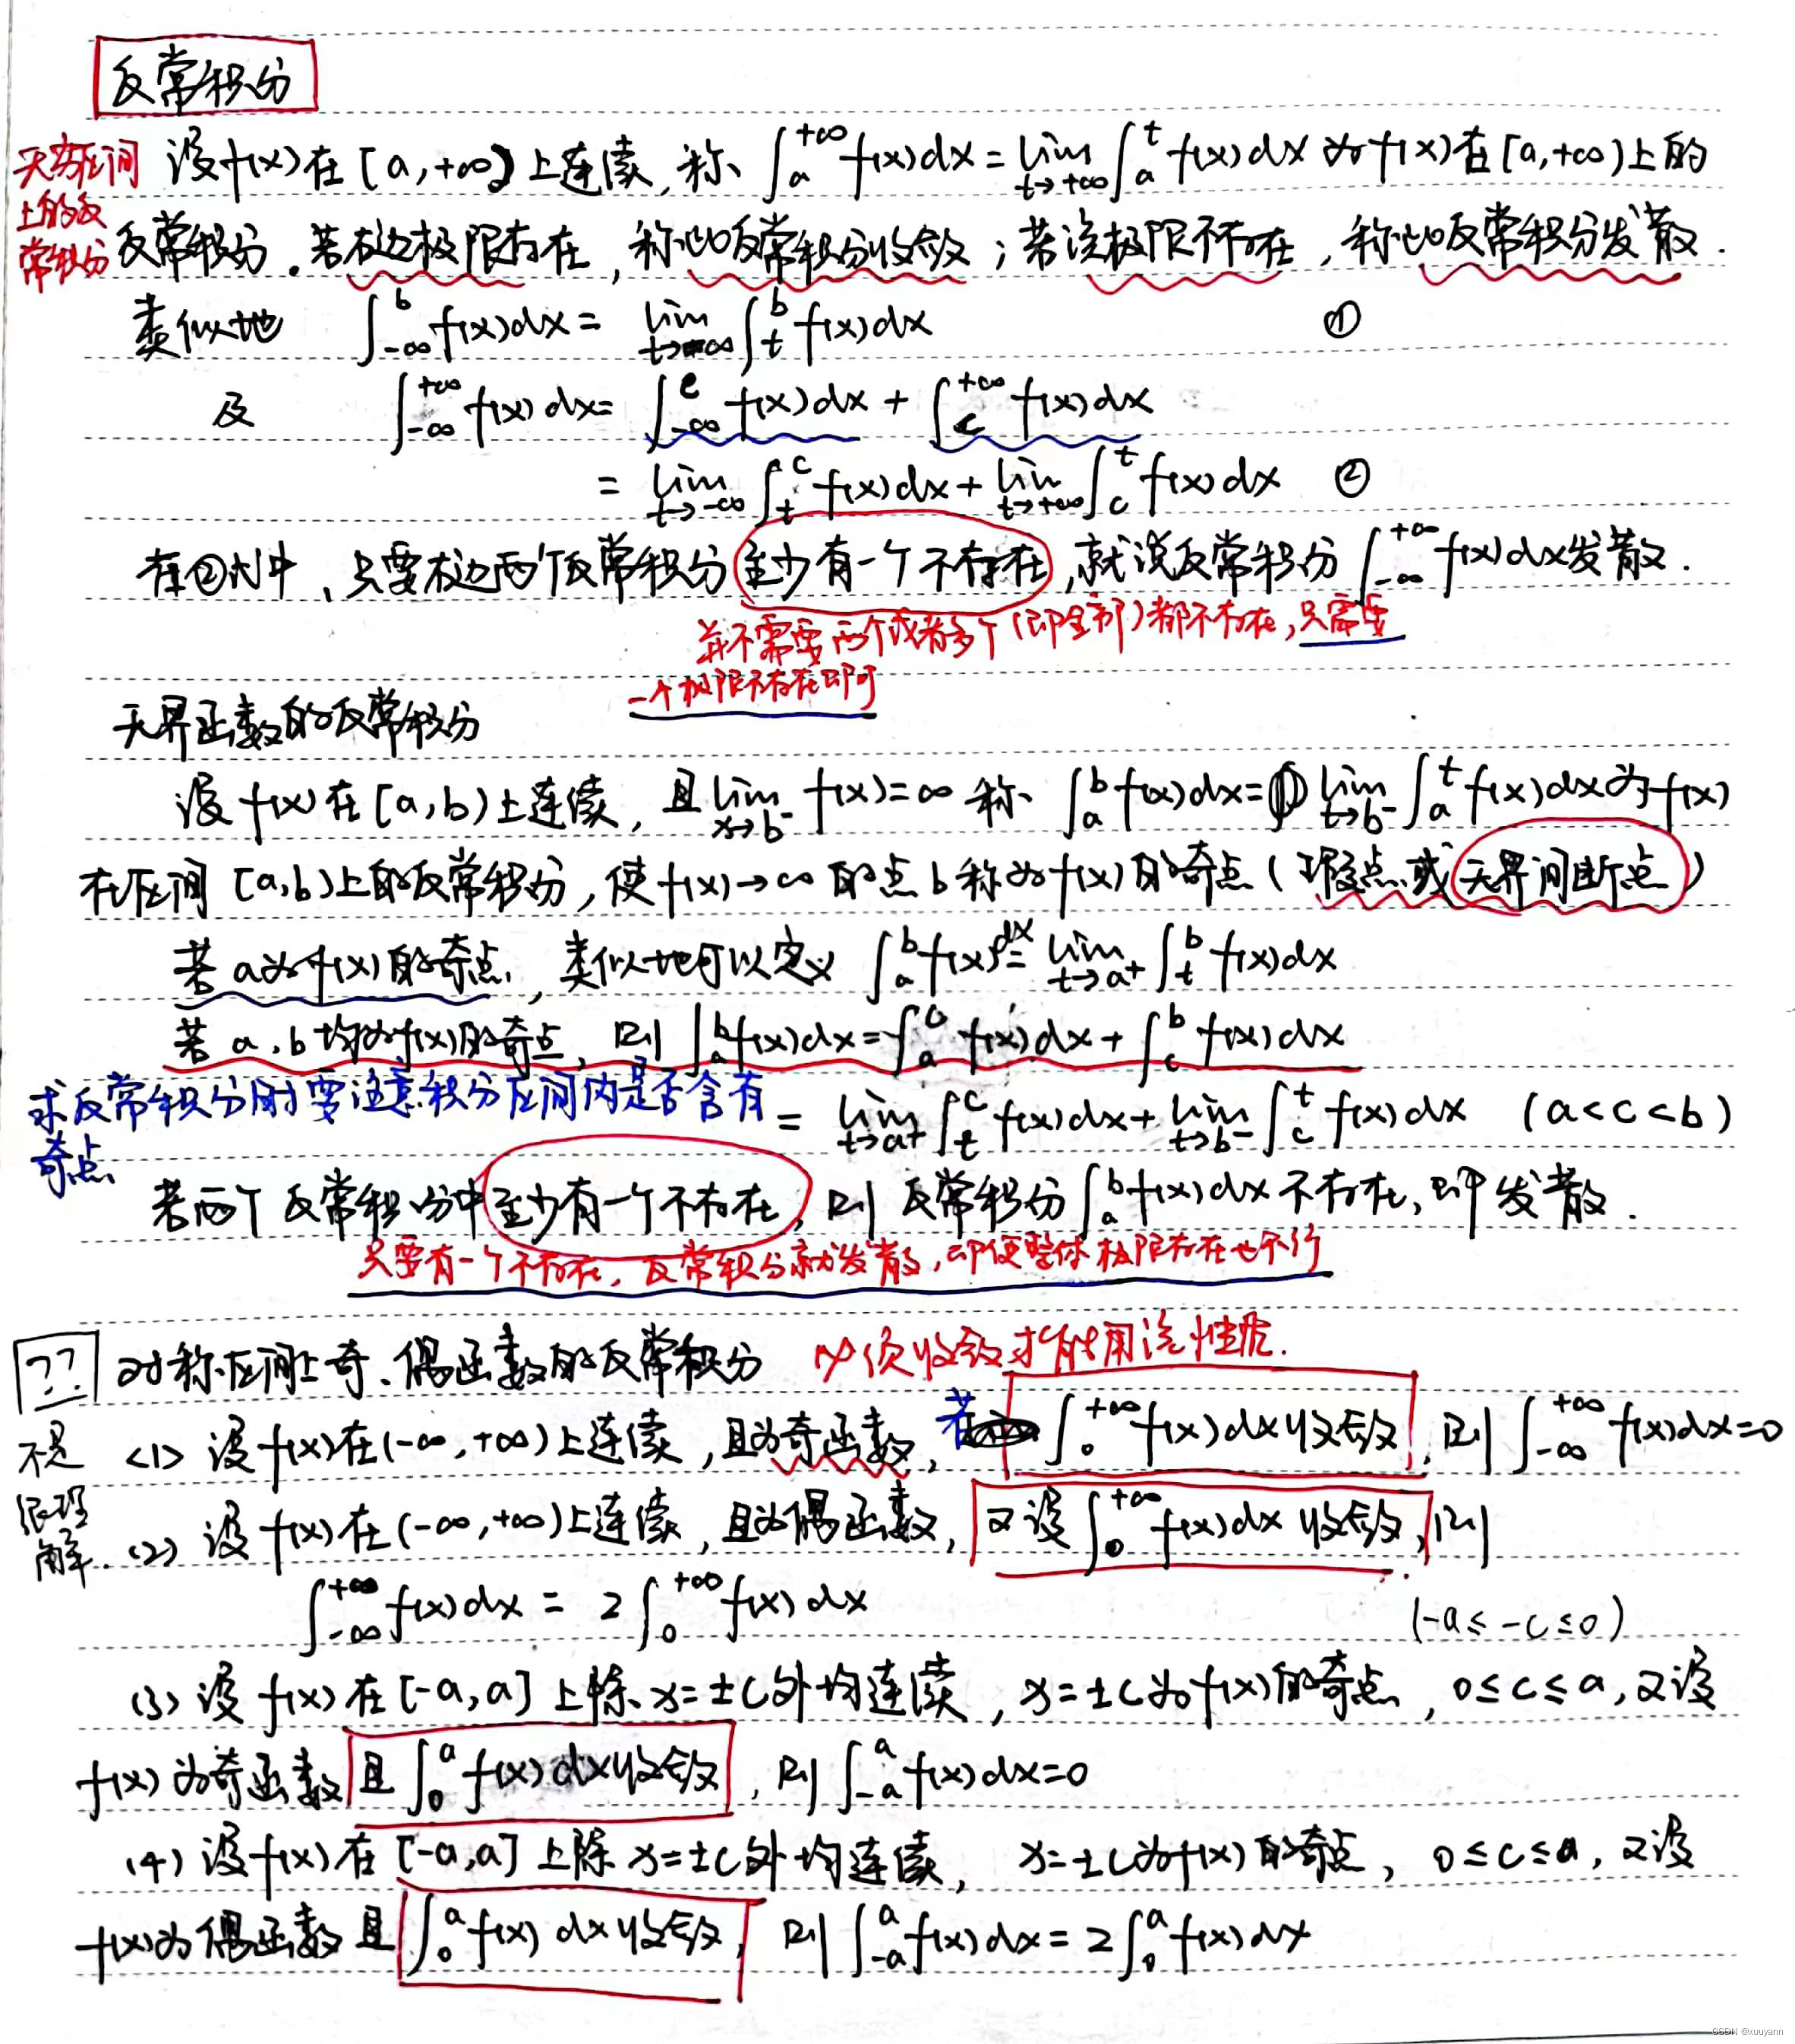 反常积分
无穷区间
上的反
常积分
设f(x)在[a,+∞)上连续,称 ∫_a^{+∞} f(x)dx = lim_{t→+∞} ∫_a^t f(x)dx 为f(x)在[a,+∞)上的
反常积分.若右边极限存在,称此反常积分收敛;若该极限不存在,称此反常积分发散.
类似地 ∫_{-∞}^b f(x)dx = lim_{t→-∞} ∫_t^b f(x)dx ①
及 ∫_{-∞}^{+∞} f(x)dx = ∫_{-∞}^c f(x)dx + ∫_c^{+∞} f(x)dx
= lim_{t→-∞} ∫_t^c f(x)dx + lim_{t→+∞} ∫_c^t f(x)dx ②
在②式中,只要右边两个反常积分至少有一个不存在,就说反常积分 ∫_{-∞}^{+∞} f(x)dx发散.
并不需要两个或者多个(即全部)都不存在,只需要
一个极限不存在即可
无界函数的反常积分
设f(x)在[a,b)上连续,且 lim_{x→b⁻} f(x)=∞ 称 ∫_a^b f(x)dx = lim_{t→b⁻} ∫_a^t f(x)dx为f(x)
在区间[a,b)上的反常积分,使f(x)→∞的点b称为f(x)的奇点(瑕点或无界间断点)
若a为f(x)的奇点,类似地可以定义 ∫_a^b f(x)dx = lim_{t→a⁺} ∫_t^b f(x)dx
若a,b均为f(x)的奇点,则 ∫_a^b f(x)dx = ∫_a^c f(x)dx + ∫_c^b f(x)dx
求反常积分时要注意积分区间内是否含有
奇点
= lim_{t→a⁺} ∫_t^c f(x)dx + lim_{t→b⁻} ∫_c^t f(x)dx (a<c<b)
若两个反常积分中至少有一个不存在,则反常积分 ∫_a^b f(x)dx不存在,即发散.
只要有一个不存在,反常积分就发散,即便整体极限存在也不行
??
不是
很理
解.
对称区间上奇、偶函数的反常积分 必须收敛才能用该性质.
(1) 设f(x)在(-∞,+∞)上连续,且为奇函数,若 ∫_0^{+∞} f(x)dx收敛,则 ∫_{-∞}^{+∞} f(x)dx=0
(2) 设f(x)在(-∞,+∞)上连续,且为偶函数,又设 ∫_0^{+∞} f(x)dx收敛,则
∫_{-∞}^{+∞} f(x)dx = 2∫_0^{+∞} f(x)dx
(-a≤-c≤0)
(3) 设f(x)在[-a,a]上除x=±c外均连续,x=±c为f(x)的奇点,0≤c≤a,又设
f(x)为奇函数且 ∫_0^a f(x)dx收敛,则 ∫_{-a}^a f(x)dx=0
(4) 设f(x)在[-a,a]上除x=±c外均连续,x=±c为f(x)的奇点,0≤c≤a,又设
f(x)为偶函数且 ∫_0^a f(x)dx收敛,则 ∫_{-a}^a f(x)dx = 2∫_0^a f(x)dx
CSDN @xuuyann